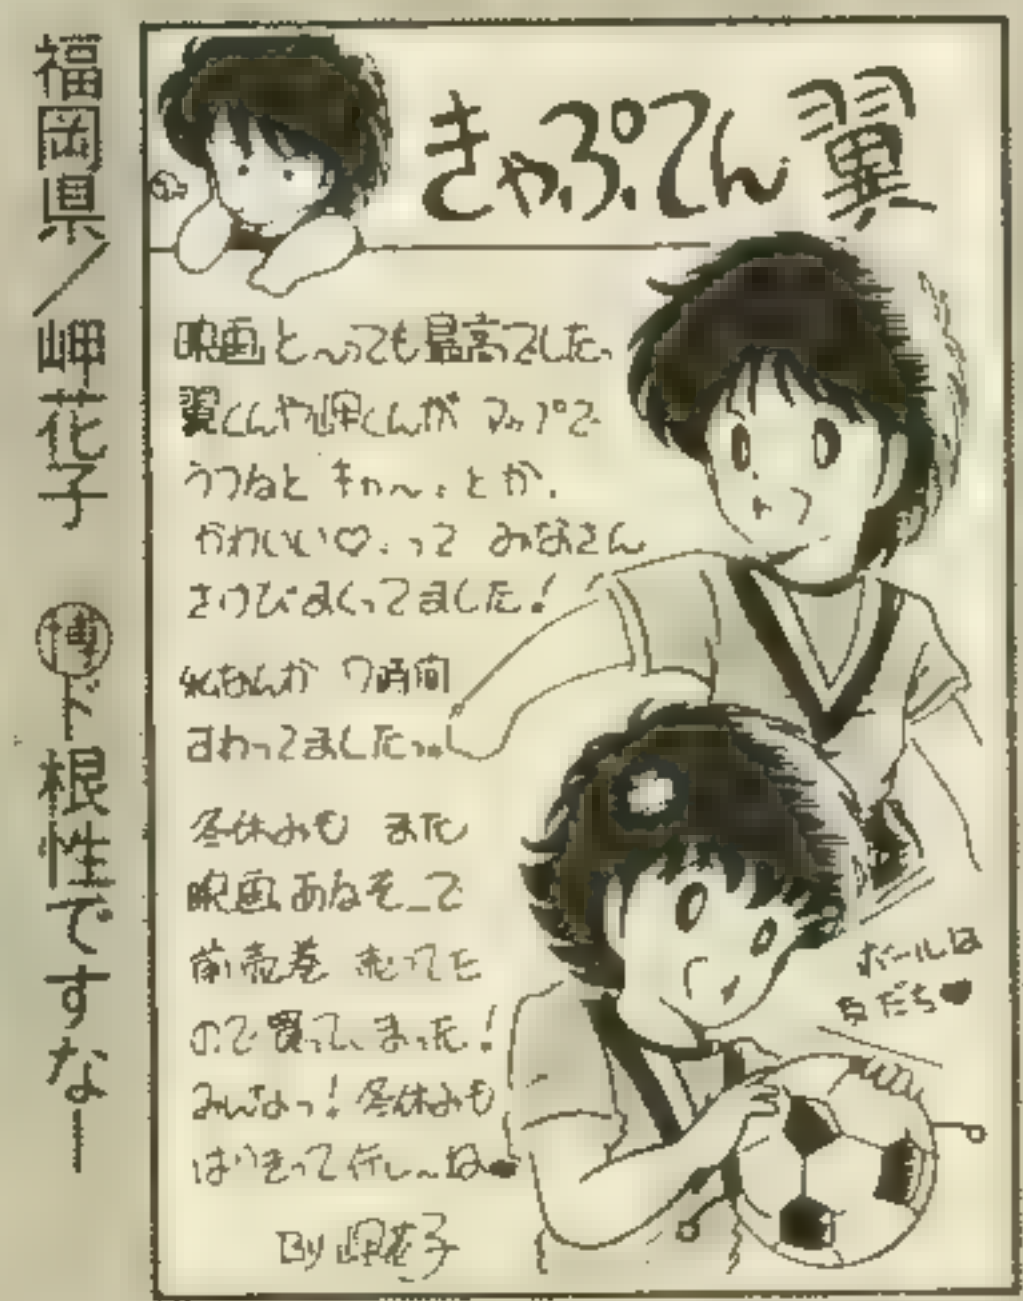 福岡県/岬花子
博ド根性ですなー
きゃぷてん翼
映画と〜っても最高でした。
翼くんや岬くんが アップで
うつると キャ〜。とか、
かわいい♡。って みなさん
さけびまくってました!
私なんか 7時間
すわってましたっ。
冬休みも また
映画あるそーで
前売巻 売ってた
ので買って、まった!
みんなっ!冬休みも
はりきって行し〜ね♥
By 岬花子
ボールは
友だち♥